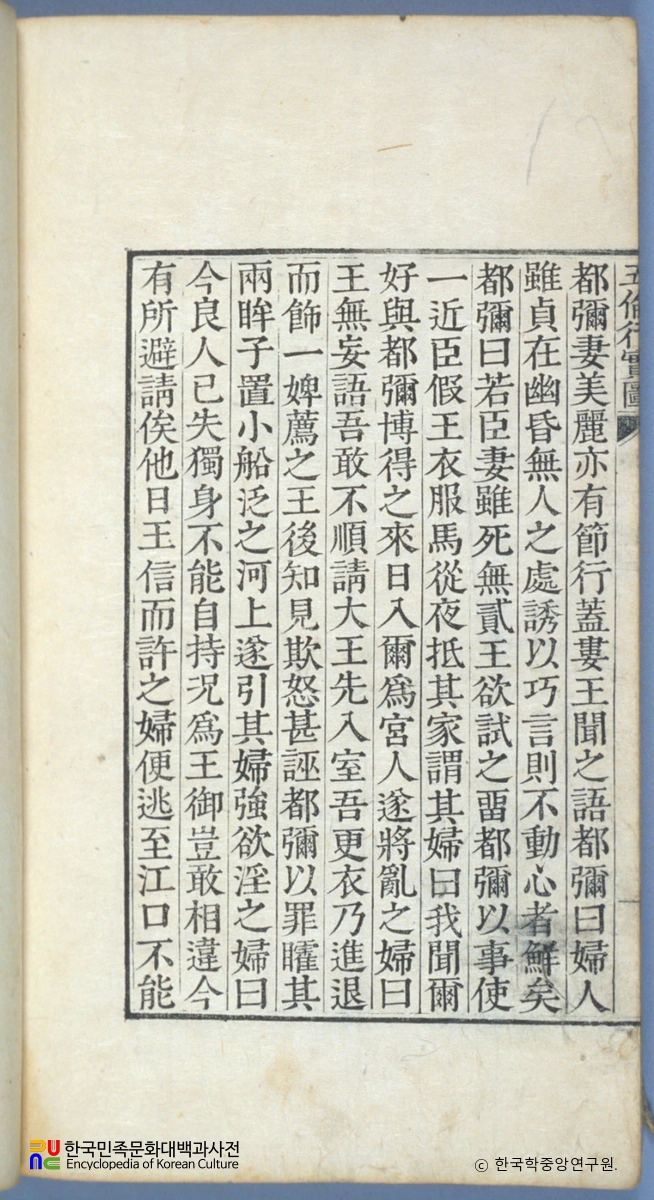 五倫行實圖
都彌妻美麗亦有節行蓋婁王聞之語都彌曰婦人
雖貞在幽昏無人之處誘以巧言則不動心者鮮矣
都彌曰若臣妻雖死無貳王欲試之畱都彌以事使
一近臣假王衣服馬從夜抵其家謂其婦曰我聞爾
好與都彌博得之來日入爾爲宮人遂將亂之婦曰
王無妄語吾敢不順請大王先入室吾更衣乃進退
而飾一婢薦之王後知見欺怒甚誣都彌以罪矐其
兩眸子置小船泛之河上遂引其婦強欲淫之婦曰
今良人已失獨身不能自持況爲王御豈敢相違今
有所避請俟他日王信而許之婦便逃至江口不能
한국민족문화대백과사전
Encyclopedia of Korean Culture
ⓒ 한국학중앙연구원.